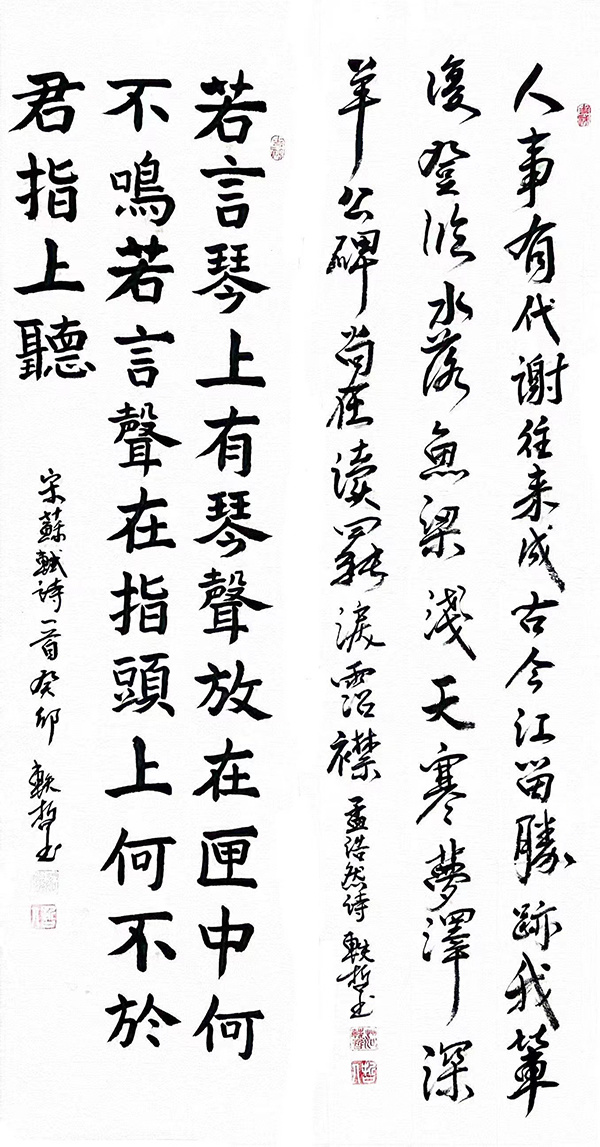 人事有代謝往来成古今江留勝跡我輩
復登臨水落魚梁淺天寒夢澤深
羊公碑尚在讀罷淚霑襟 孟浩然詩 軼哲书
若言琴上有琴聲放在匣中何
不鳴若言聲在指頭上何不於
君指上聽
宋蘇軾詩一首癸卯 軼哲书